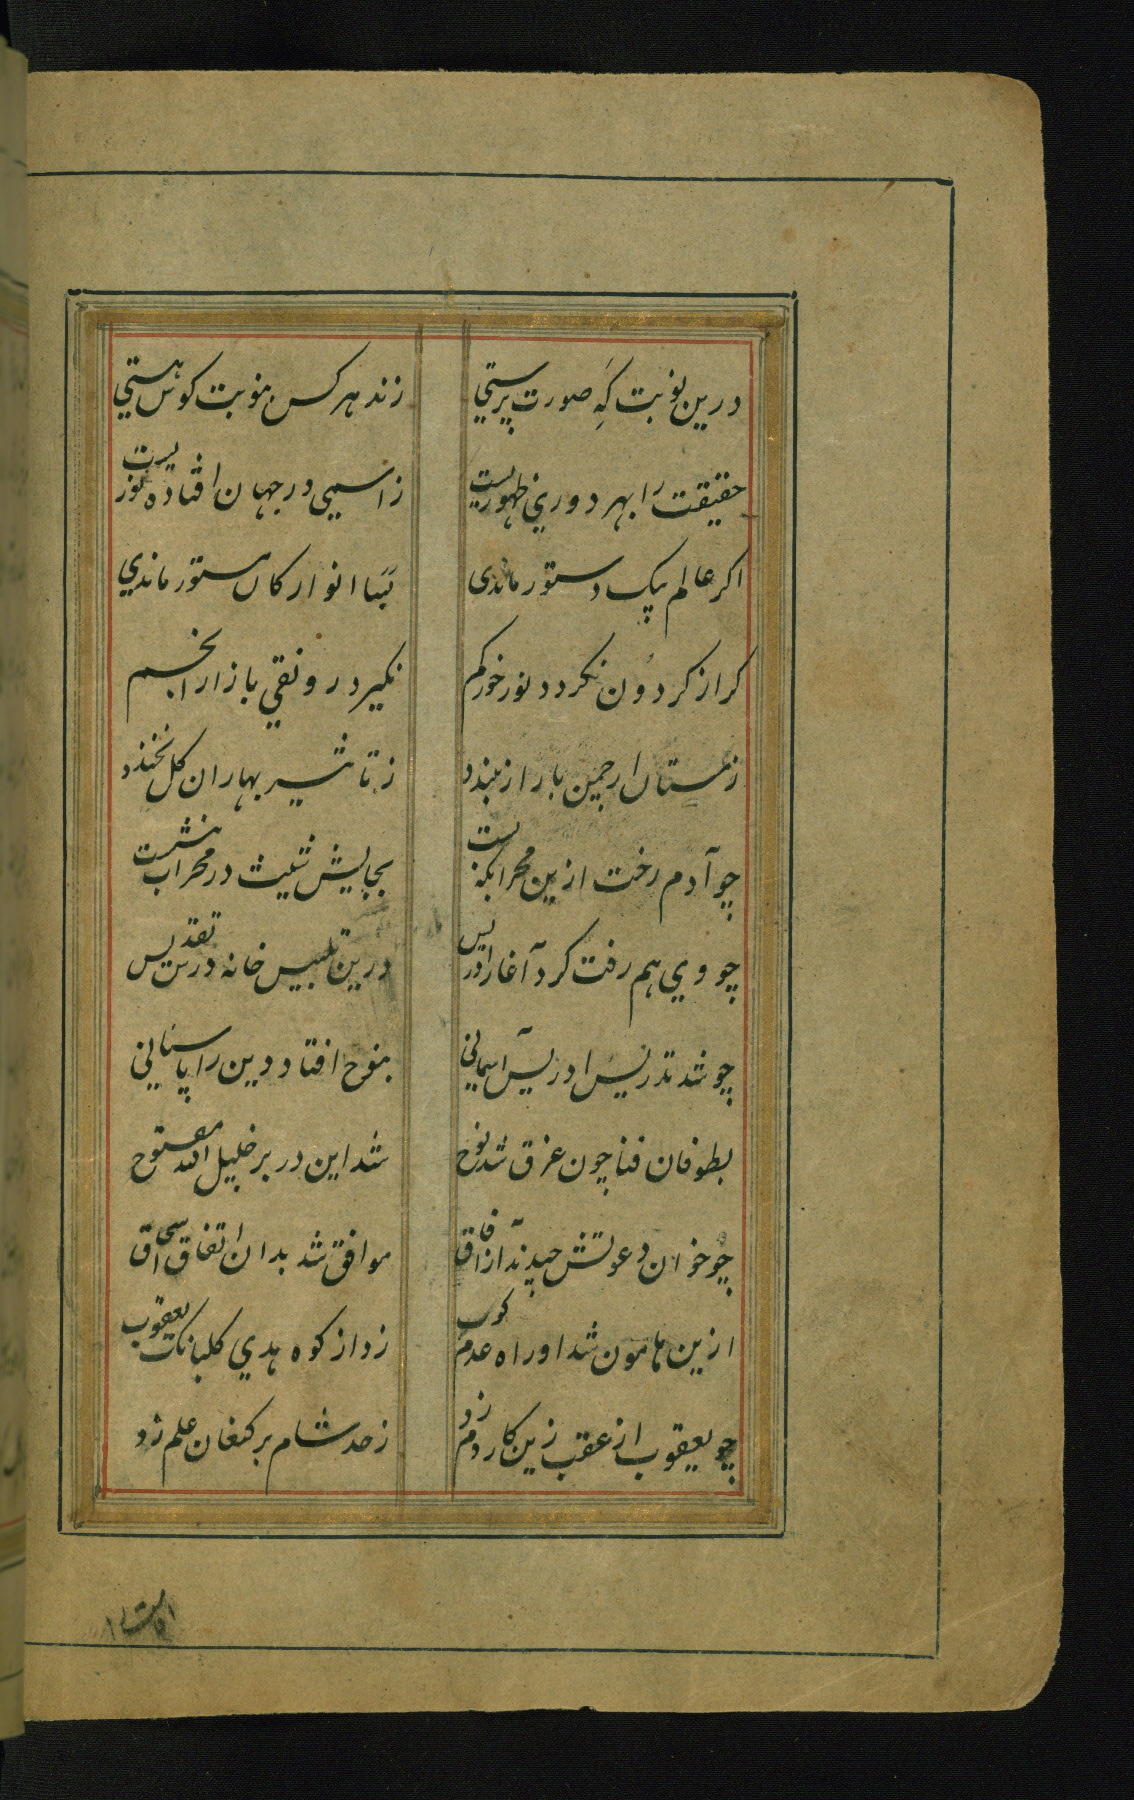 درین نوبت کَهِ صورت پرستی زند هر کس بنوبت کوس هستی
حقیقت را بهر دوری ظهوریست ز اسمی در جهان افتاده نوریست
اکر عالم بیک دستور ماندی بَسَا انوار کان مستور ماندی
کر از کردون نکردد نور خور کم نکیرد رونقی بازار انجم
زمستان از چمن بار ار نبندد ز تاثیر بهاران کل نخندد
چو آدم رخت ازین محرابکه بست بجایش شیث در محراب بنشست
چو وی هم رفت کرد آغاز ادریس درین تلبیس خانه درس تقدیس
چو شد تدریس ادریس آسمانی بنوح افتاد دین را پاسبانی
بطوفان فنا چون غرق شد نوح شد این در بر خلیل الله مفتوح
چو خوان دعوتش چیدند ز آفاق موافق شد بدان اتفاق اسحاق
ازین هامون شد او راه عدم کوب زد از کوه هدی کلبانک یعقوب
چو یعقوب از عقب زین کار دم زد ز حد شام بر کنعان علم زد